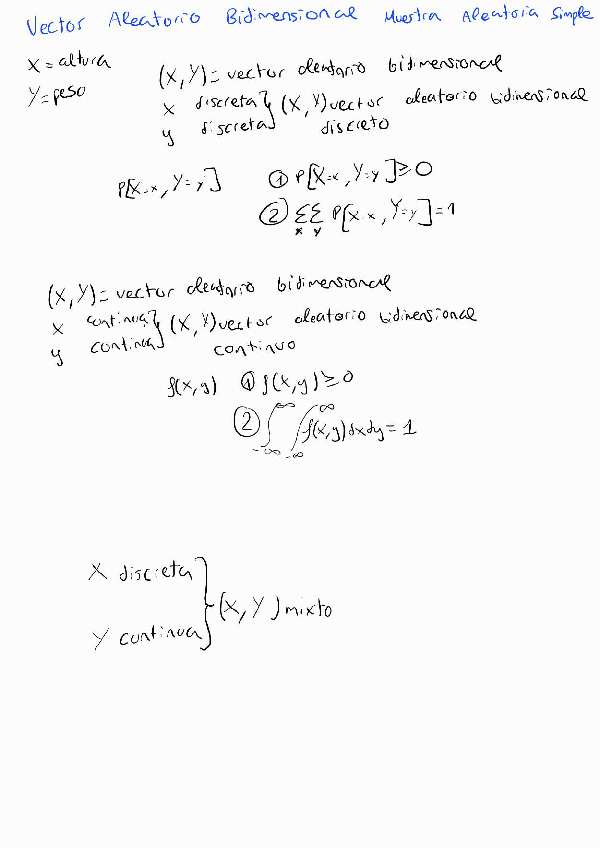 Vector Aleatorio Bidimensional Muestra Aleatoria Simple
X = altura
Y = peso
(X,Y) = vector aleatorio bidimensional
X discreta } (X,Y) vector aleatorio bidimensional
Y discreta } discreto
P[X=x, Y=y] ① P[X=x, Y=y] ≥ 0
② ΣΣ P[X=x, Y=y] = 1
x y
(X,Y) = vector aleatorio bidimensional
X continua } (X,Y) vector aleatorio bidimensional
Y continua } continuo
f(x,y) ① f(x,y) ≥ 0
② ∫_{-∞}^{∞} ∫_{-∞}^{∞} f(x,y) dx dy = 1
X discreta
} (X,Y) mixto
Y continua